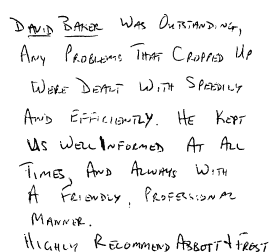 DAVID BAKER WAS OUTSTANDING,
ANY PROBLEMS THAT CROPPED UP
WERE DEALT WITH SPEEDILY
AND EFFICIENTLY. HE KEPT
US WELL INFORMED AT ALL
TIMES, AND ALWAYS WITH
A FRIENDLY, PROFESSIONAL
MANNER.
HIGHLY RECOMMEND ABBOTT & FROST